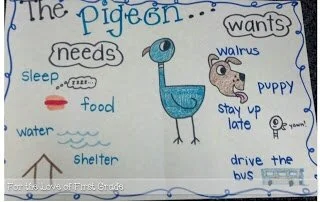 The pigeon...
needs
wants
sleep
food
water
shelter
walrus
puppy
stay up
late
yawn!
drive the
bus
For the Love of First Grade